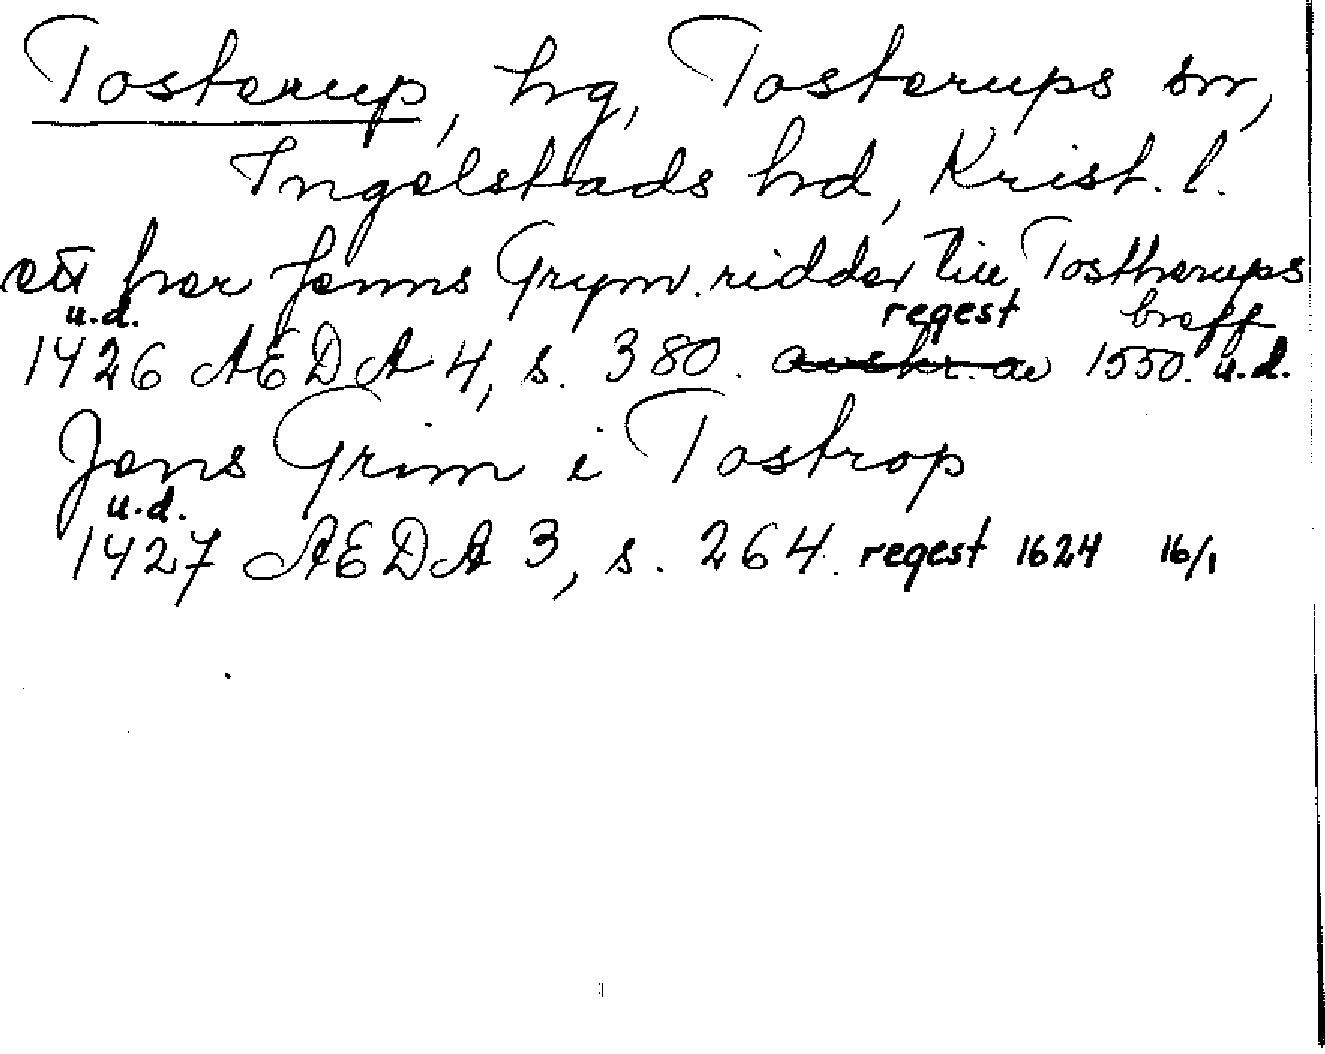 Tosterup, hg, Tosterups sn,
Ingelstads hd, Krist. l.
ett her Jenns Grym ridder till Tostherups
breff
u.d. regest
1426 AEDA 4, s. 380. avskr. av 1550. u.d.
Jens Grim i Tostrop
u.d.
1427 AEDA 3, s. 264. regest 1624 16/1